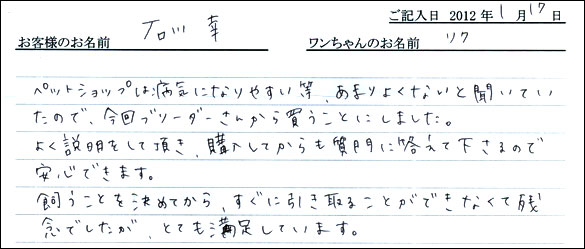 ご記入日 2012年 1月 17日
お客様のお名前 石川 幸 ワンちゃんのお名前 リク
ペットショップは病気になりやすい等、あまりよくないと聞いてい
たので、今回ブリーダーさんから買うことにしました。
よく説明をして頂き、購入してからも質問に答えて下さるので
安心できます。
飼うことを決めてから、すぐに引き取ることができなくて残
念でしたが、とても満足しています。